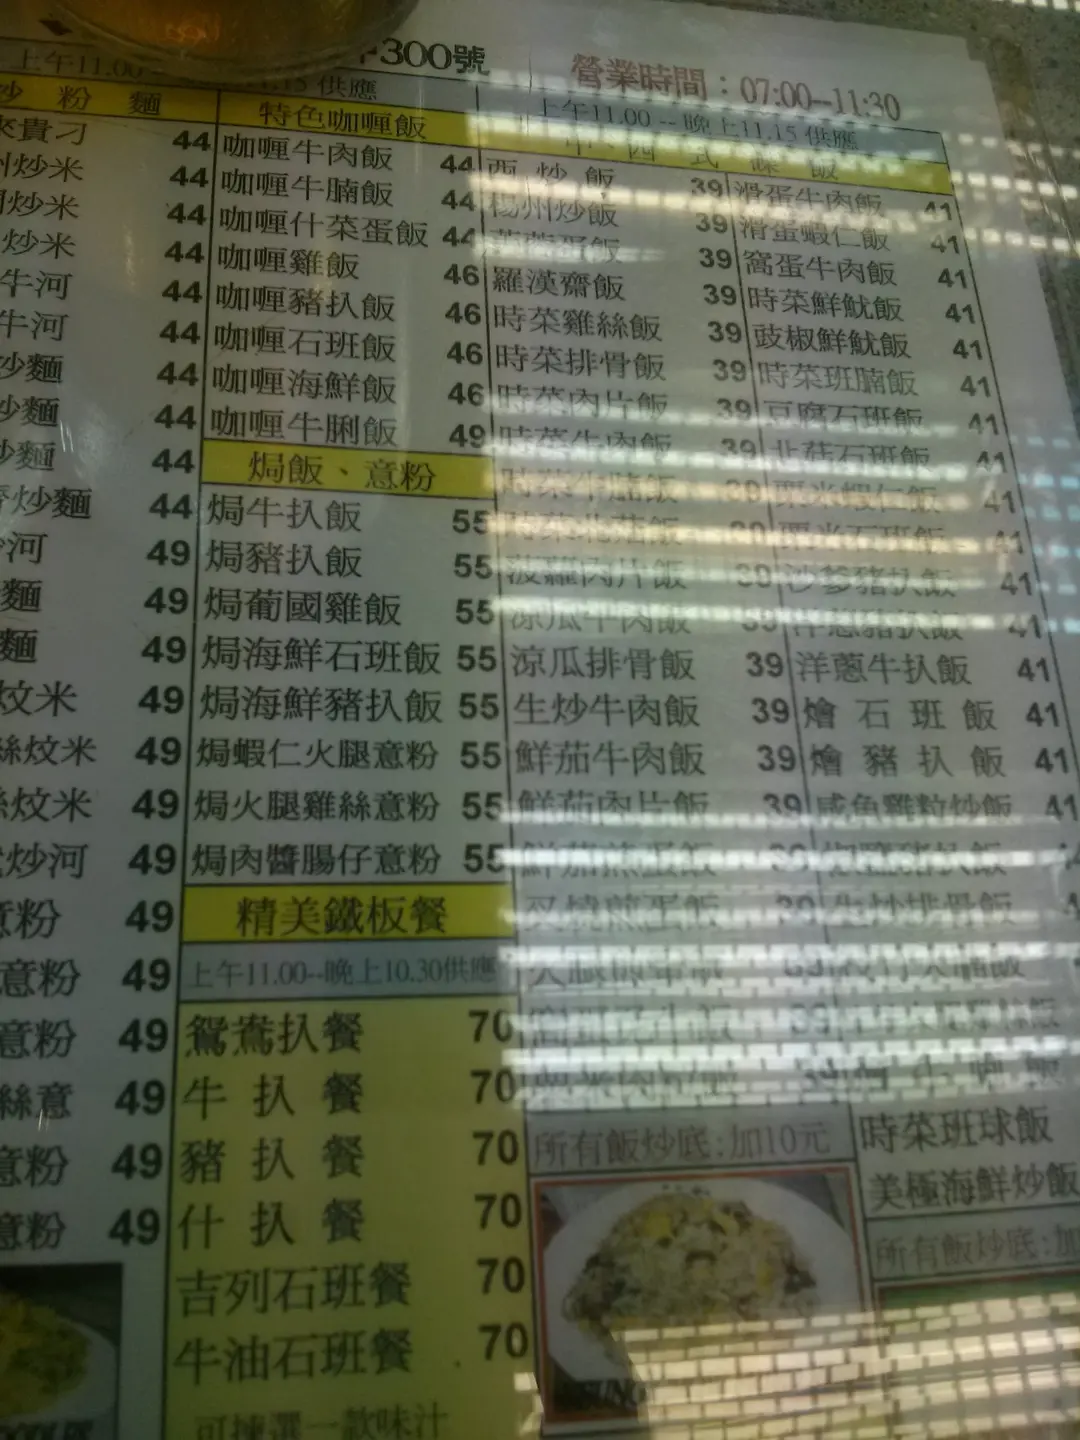 300號
營業時間：07:00--11:30
上午11.00
11.15 供應
上午11.00 -- 晚上11.15 供應
炒 粉 麵
貴刁 44
炒米 44
炒米 44
炒米 44
牛河 44
牛河 44
炒麵 44
炒麵 44
炒麵 44
炒麵 44
河 49
麵 49
麵 49
炆米 49
絲炆米 49
炆米 49
炒河 49
意粉 49
意粉 49
意粉 49
絲意 49
意粉 49
意粉 49
特色咖喱飯
咖喱牛肉飯 44
咖喱牛腩飯 44
咖喱什菜蛋飯 44
咖喱雞飯 46
咖喱豬扒飯 46
咖喱石班飯 46
咖喱海鮮飯 46
咖喱牛脷飯 49
焗飯、意粉
焗牛扒飯 55
焗豬扒飯 55
焗葡國雞飯 55
焗海鮮石班飯 55
焗海鮮豬扒飯 55
焗蝦仁火腿意粉 55
焗火腿雞絲意粉 55
焗肉醬腸仔意粉 55
精美鐵板餐
上午11.00--晚上10.30供應
鴛鴦扒餐 70
牛 扒 餐 70
豬 扒 餐 70
什 扒 餐 70
吉列石班餐 70
牛油石班餐 70
可揀選一款味汁
西 炒 飯 39
楊州炒飯 39
39
羅漢齋飯 39
時菜雞絲飯 39
時菜排骨飯 39
時菜肉片飯 39
時菜牛肉飯 39
時菜牛腩飯 39
時菜北菇飯 39
菠蘿肉片飯 39
涼瓜牛肉飯 39
涼瓜排骨飯 39
生炒牛肉飯 39
鮮茄牛肉飯 39
鮮茄肉片飯 39
鮮茄煎蛋飯 39
叉燒煎蛋飯 39
所有飯炒底:加10元
滑蛋牛肉飯 41
滑蛋蝦仁飯 41
窩蛋牛肉飯 41
時菜鮮魷飯 41
豉椒鮮魷飯 41
時菜班腩飯 41
豆腐石班飯 41
北菇石班飯 41
粟米蝦仁飯 41
粟米石班飯 41
沙爹豬扒飯 41
洋蔥豬扒飯 41
洋蔥牛扒飯 41
燴 石 班 飯 41
燴 豬 扒 飯 41
咸魚雞粒炒飯 41
椒鹽豬扒飯
生炒排骨飯
時菜班球飯
美極海鮮炒飯
所有飯炒底:加